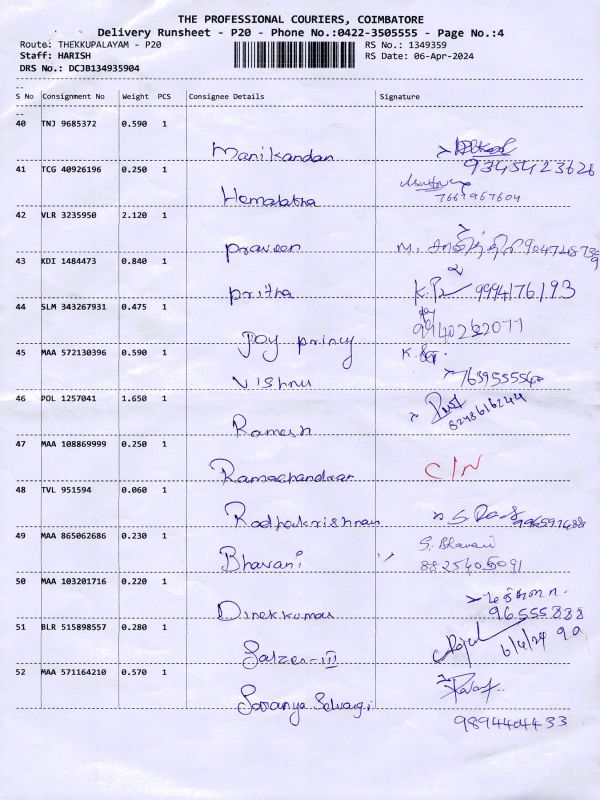 THE PROFESSIONAL COURIERS, COIMBATORE
Delivery Runsheet - P20 - Phone No.:0422-3505555 - Page No.:4
Route: THEKKUPALAYAM - P20 RS No.: 1349359
Staff: HARISH RS Date: 06-Apr-2024
DRS No.: DCJB134935904
S No Consignment No Weight PCS Consignee Details Signature
40 TNJ 9685372 0.590 1
Manikandan 9345423626
41 TCG 40926196 0.250 1
Hemalatha 7667967604
42 VLR 3235950 2.120 1
Praveen M.
43 KDI 1484473 0.840 1
Pritha 9994176193
44 SLM 343267931 0.475 1
Joy princy 9940262077
45 MAA 572130396 0.590 1
Vishnu
46 POL 1257041 1.650 1
Ramesh 8248616244
47 MAA 108869999 0.250 1
Ramachandran C/N
48 TVL 951594 0.060 1
Radhakrishnan
49 MAA 865062686 0.230 1 S. Bhavani
Bhavani 8825405091
50 MAA 103201716 0.220 1
Dinekkumar 96555888
51 BLR 515898557 0.280 1 90
Salzer-III 6/4/24
52 MAA 571164210 0.570 1
Saranya Selvaraj
9894404433